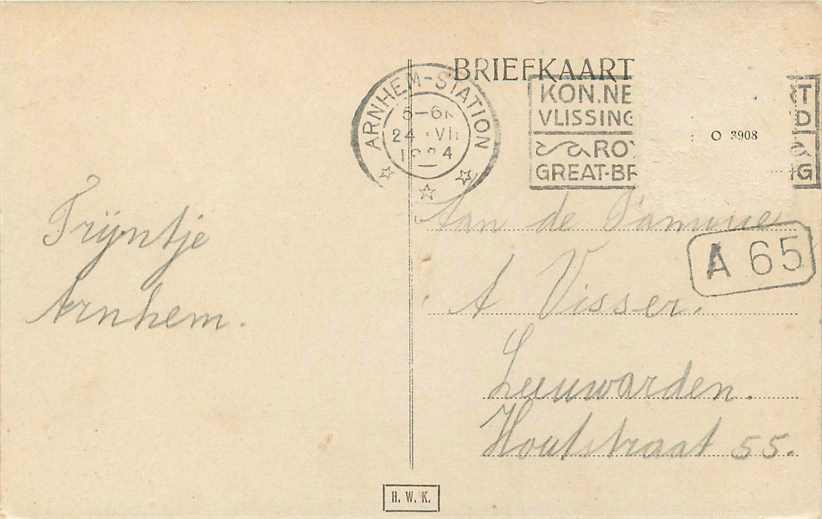 BRIEFKAART
ARNHEM-STATION
24 VII
1924
KON.NE
VLISSING
D
ROY
GREAT-BR
G
O 3908
Trijntje
Arnhem.
Aan de Familie
A 65
A Visser.
Leeuwarden.
Houtstraat 55.
H. W. K.